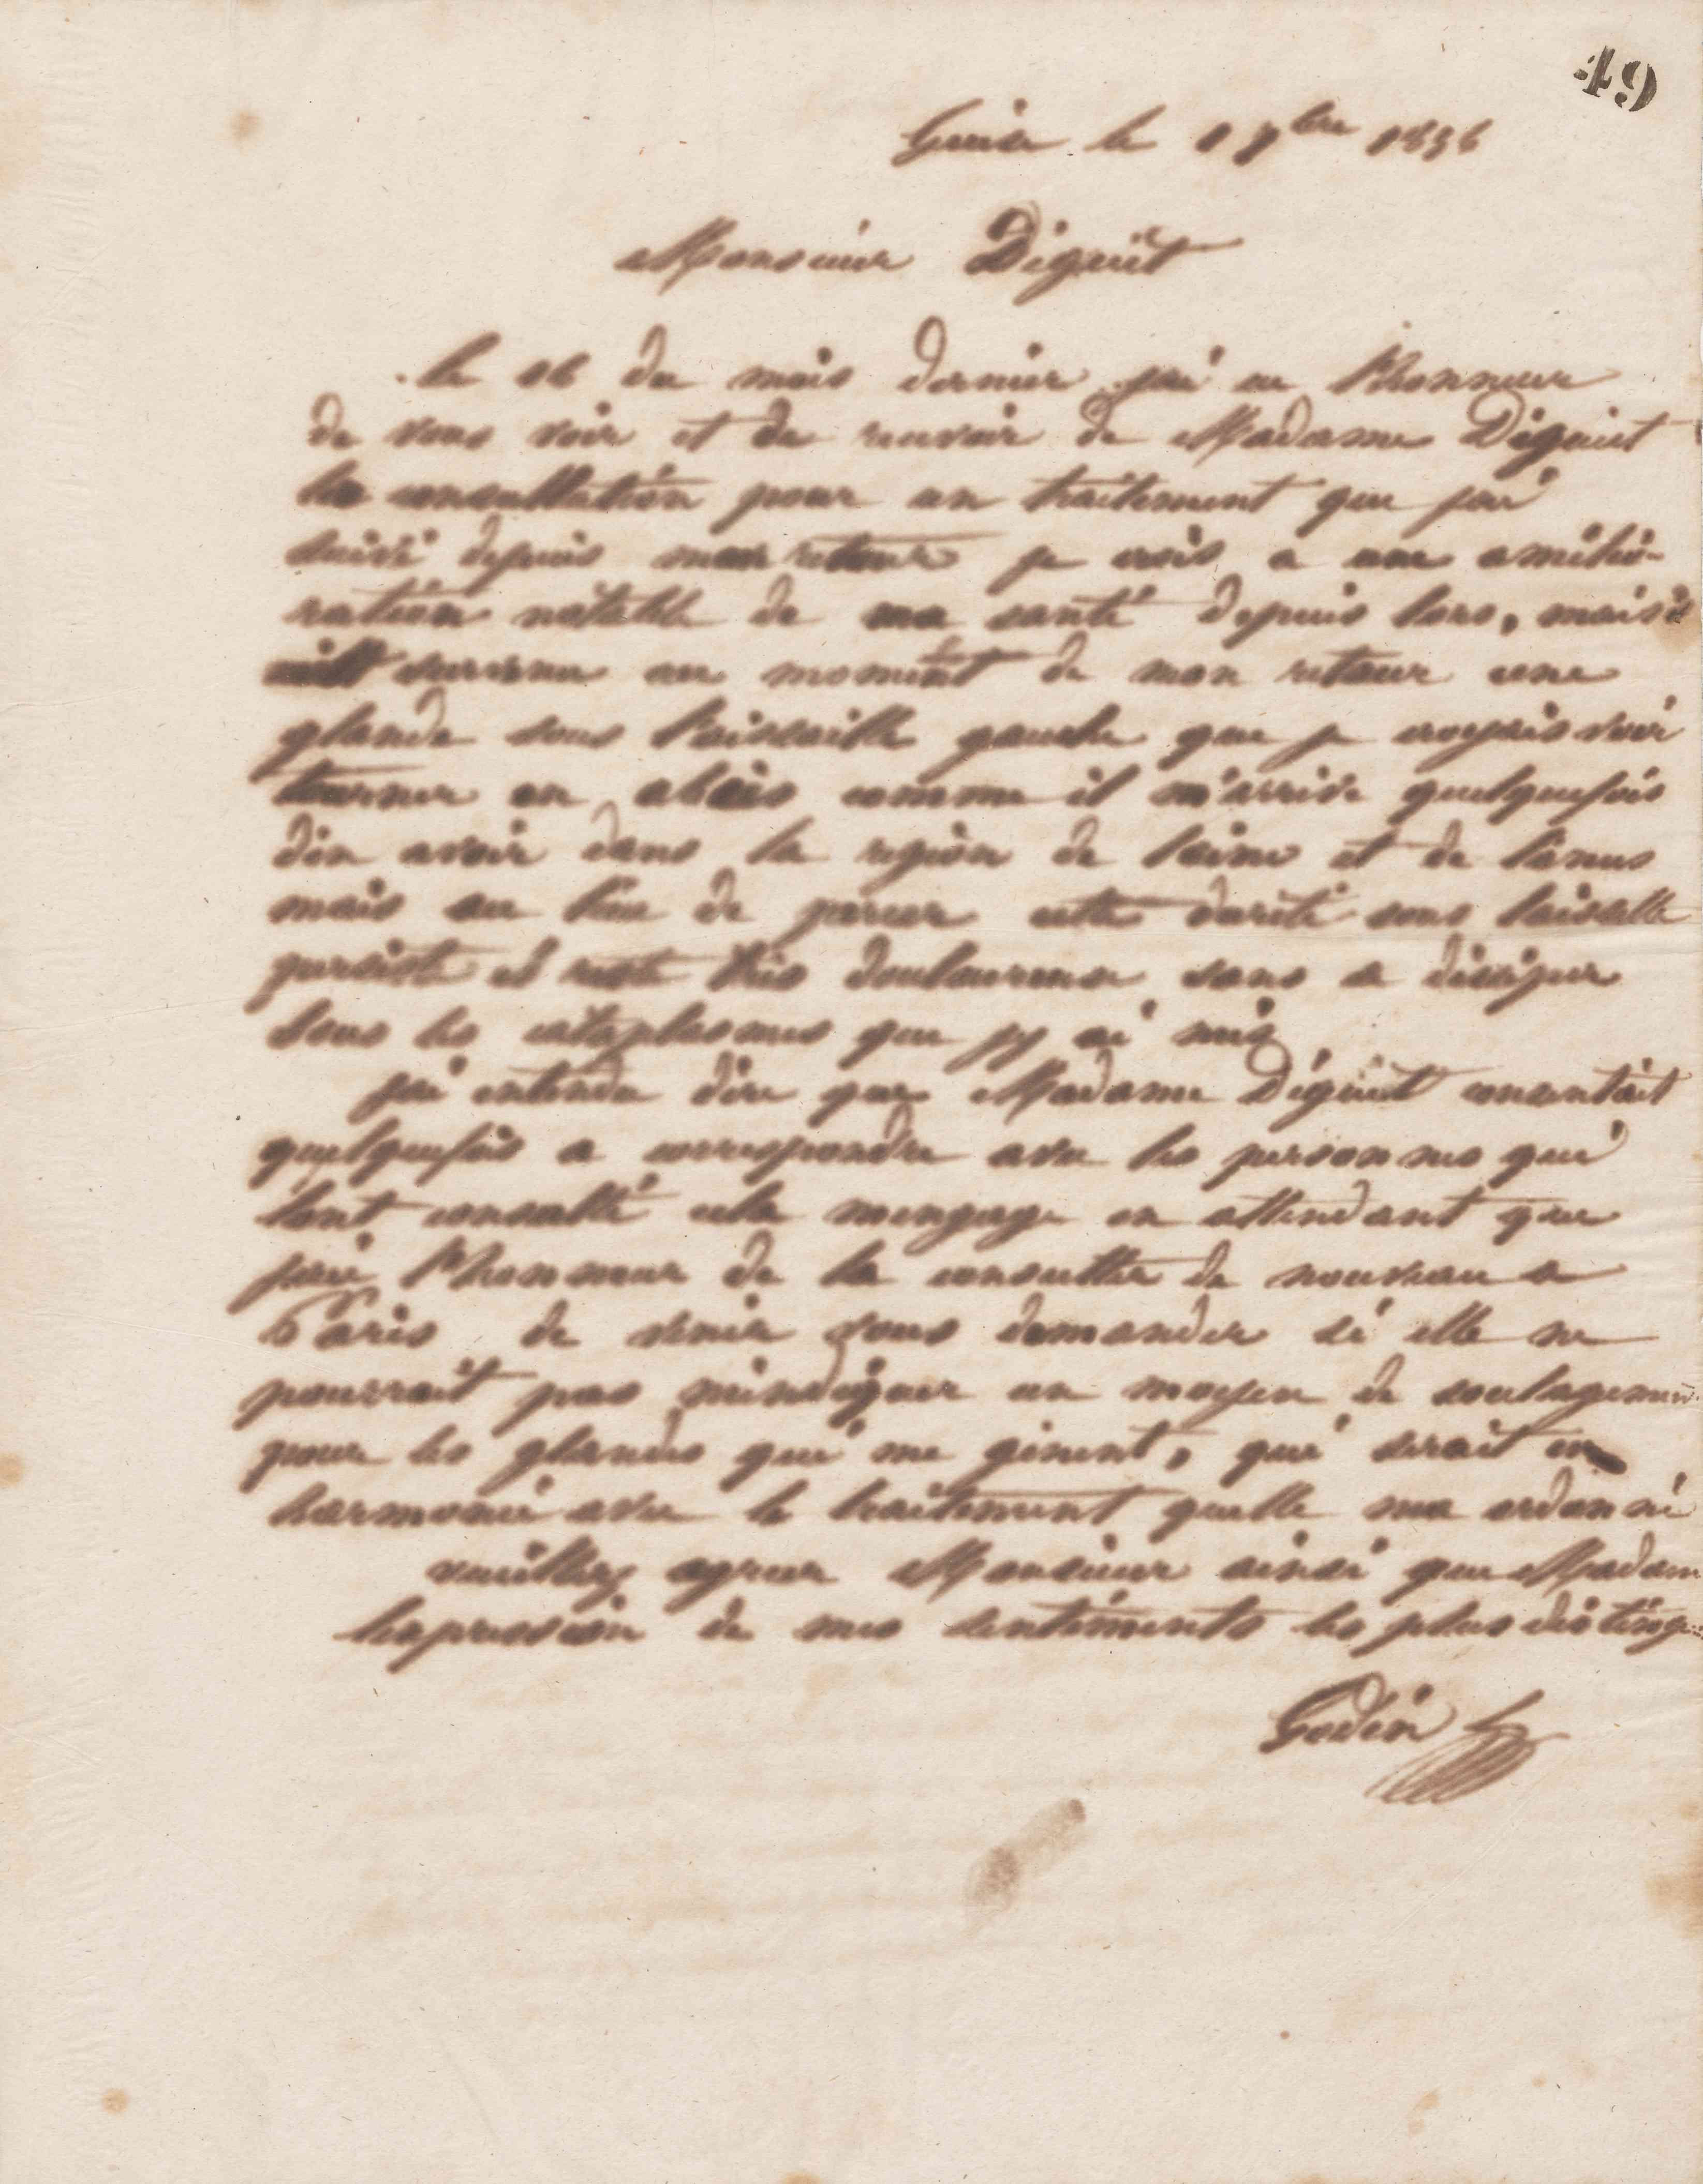 49
Guise le 1 7bre 1856
Monsieur Diguet
le 16 du mois dernier j'ai eu l'honneur
de vous voir et de recevoir de Madame Diguet
la consultation pour un traitement que j'ai
suivi depuis mon retour je crois a une amélio-
ration notable de ma santé depuis lors, mais il
survenu au moment de mon retour une
glande sous l'aissaille gauche que je croyais voir
tourner en abcès comme il m'arrive quelquefois
d'en avoir dans la région de l'aine et de l'anus
mais au lieu de percer cette dureté sous l'aisselle
persiste et reste très douloureuse sans se dissiper
sous les cataplasmes que j'y ai mis
j'ai entendu dire que Madame Diguet consentait
quelquefois a correspondre avec les personnes qui
l'ont consulté cela m'engage en attendant que
j'aie l'honneur de la consulter de nouveau a
Paris de venir vous demander si elle ne
pourrait pas m'indiquer un moyen de soulagement
pour les glandes qui me gênent, qui serait en
harmonie avec le traitement quelle ma ordonné
veuillez agréer Monsieur ainsi que Madame
l'expression de mes sentiments les plus disting
Godin